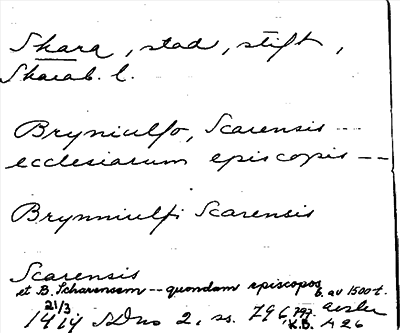 Skara, stad, stift,
Skarab. l.
Bryniulfo, Scarensis ---
ecclesiarum episcopis --
Brynniulfi Scarensis
Scarensis
et B. Scharensem -- quondam episcopos b. av 1500-t.
21/3
1414 SDns 2, ss. 796, 797.
K.B. A 26